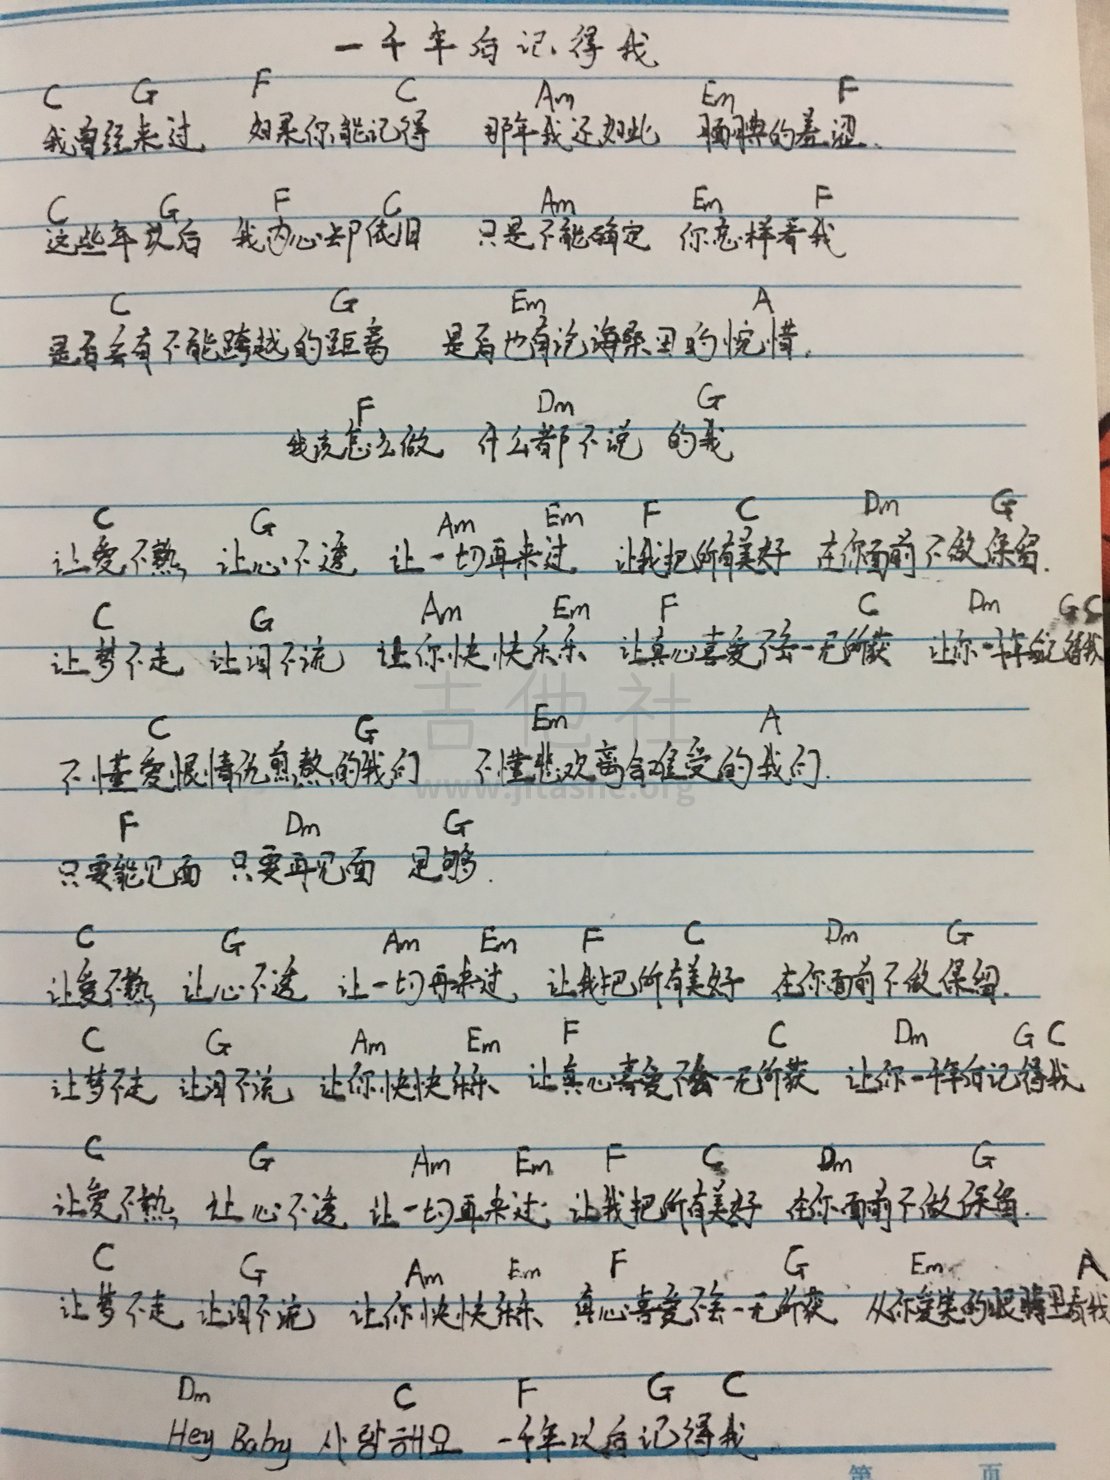 一千年后记得我
C G F C Am Em F
我曾经来过 如果你能记得 那年我还如此 腼腆的羞涩.
C G F C Am Em F
这些年以后 我内心却依旧 只是不能确定 你怎样看我
C G Em A
是否会有不能跨越的距离 是否也有沧海桑田的惋惜.
F Dm G
我该怎么做 什么都不说 的我
C G Am Em F C Dm G
让爱不熟, 让心不透 让一切再来过. 让我把所有美好 在你面前不做保留.
C G Am Em F C Dm G C
让梦不走 让泪不流 让你快快乐乐 让真心喜爱不会一无所获 让你一千年后记得我
吉他社
C G Em A
不懂爱恨情仇煎熬的我们 不懂悲欢离合难受的我们.
www.jitashe.org
F Dm G
只要能见面 只要再见面 足够.
C G Am Em F C Dm G
让爱不熟, 让心不透 让一切再来过, 让我把所有美好 在你面前不做保留.
C G Am Em F C Dm G C
让梦不走 让泪不流 让你快快乐乐 让真心喜爱不会一无所获 让你一千年后记得我
C G Am Em F C Dm G
让爱不熟, 让心不透 让一切再来过; 让我把所有美好 在你面前不做保留.
C G Am Em F G Em A
让梦不走 让泪不流 让你快快乐乐 真心喜爱不会一无所获 从你爱笑的眼睛里看我
Dm C F G C
Hey Baby 사랑해요 一千年以后记得我.
第 页